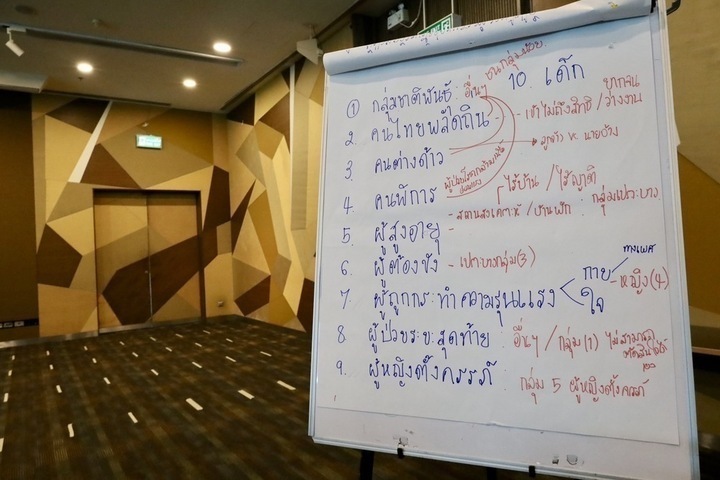 ชนกลุ่มน้อย
① กลุ่มชาติพันธุ์ อื่นๆ 10. เด็ก ยากจน
2. คนไทยพลัดถิ่น - เข้าไม่ถึงสิทธิ /ว่างงาน
3 คนต่างด้าว ลูกจ้าง vs นายจ้าง
4 คนพิการ ไร้บ้าน / ไร้ญาติ
- สถานสงเคราะห์ /บ้านพัก : กลุ่มเปราะบาง
5 ผู้สูงอายุ -
6 ผู้ต้องขัง - เปราะบางกลุ่ม(3)
7. ผู้ถูกกระทำความรุนแรง < กาย ใจ ทางเพศ - หญิง(4)
8 ผู้ป่วยระยะสุดท้าย อื่นๆ / กลุ่ม (1) ไม่สามารถ ตัดสินใจได้ เอง
9. ผู้หญิงตั้งครรภ์ : กลุ่ม 5 ผู้หญิงตั้งครรภ์